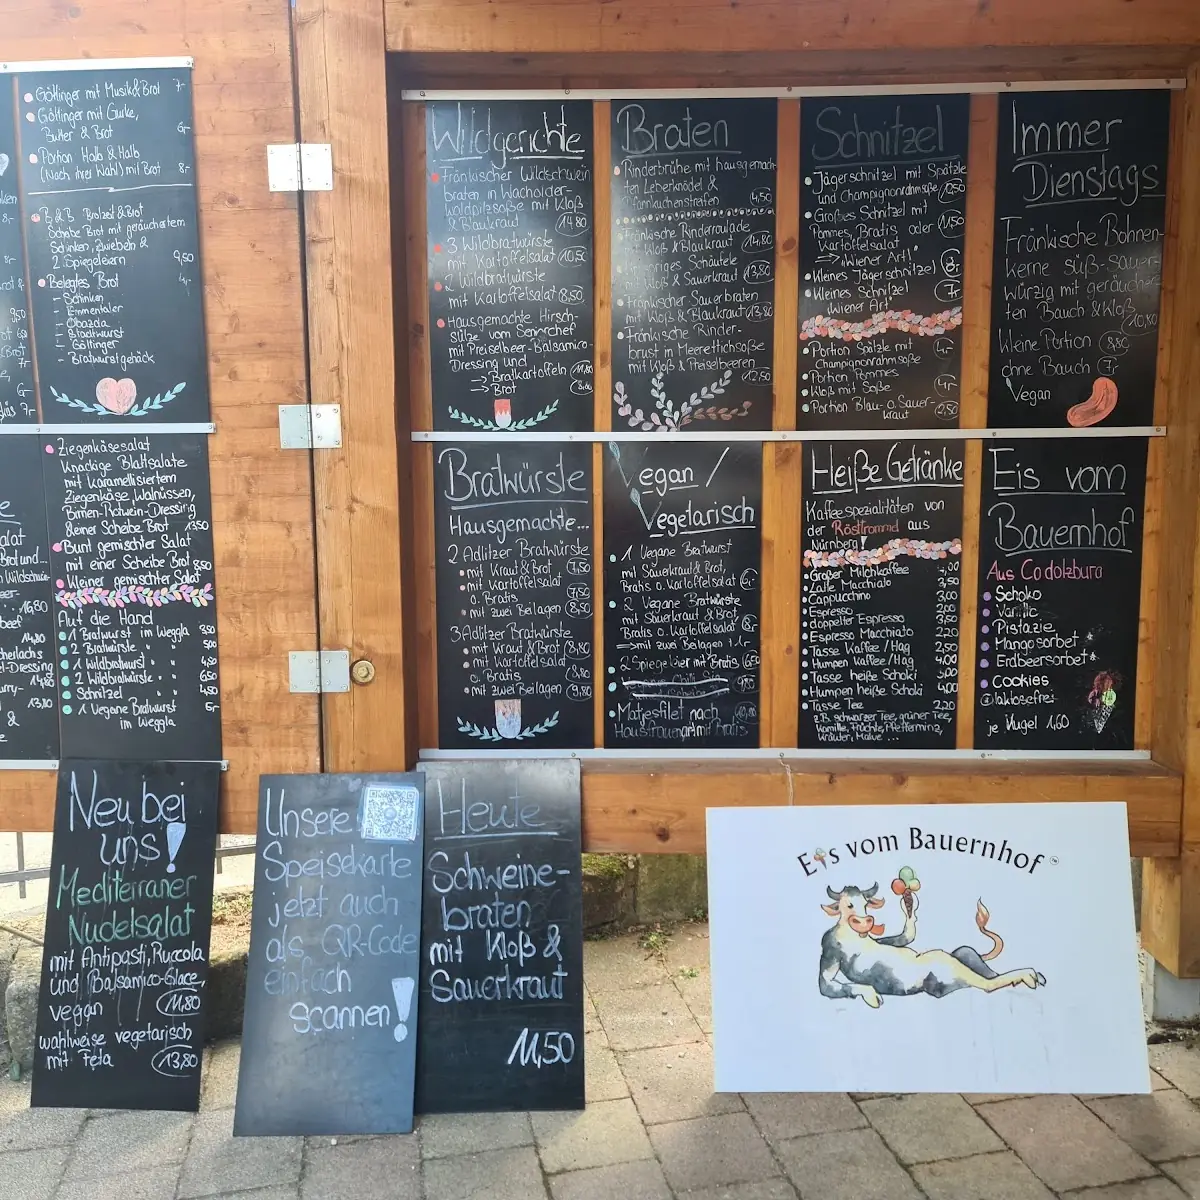 Göttinger mit Musik & Brot 7,-
Göttinger mit Gurke,
Butter & Brot 6,-
Portion Halb & Halb
(Nach ihrer Wahl) mit Brot 8,-
B & B Brotzeit & Brot
Scheibe Brot mit geräuchertem
Schinken, Zwiebeln &
2 Spiegeleiern 9,50
Belegtes Brot 4,-
- Schinken
- Emmentaler
- Obazda
- Stadtwurst
- Göttinger
- Bratwurstgehäck
Ziegenkäsesalat
Knackige Blattsalate
mit Karamellisiertem
Ziegenkäse, Walnüssen,
Birnen-Rotwein-Dressing
& einer Scheibe Brot 13,50
Bunt gemischter Salat
mit einer Scheibe Brot 8,50
Kleiner gemischter Salat
Auf die Hand
1 Bratwurst im Weggla 3,50
2 Bratwürste " " 5,00
1 Wildbratwurst " " 4,50
2 Wildbratwürste " " 6,50
Schnitzel " " 4,50
1 Vegane Bratwurst 5,-
im Weggla
Wildgerichte
Fränkischer Wildschwein
braten in Wacholder-
waldpilzsoße mit Kloß
& Blaukraut 14,80
3 Wildbratwürste
mit Kartoffelsalat 10,50
2 Wildbratwürste
mit Kartoffelsalat 8,50
Hausgemachte Hirsch-
sülze vom Seniorchef
mit Preiselbeer-Balsamico-
Dressing und
→ Bratkartoffeln 11,80
→ Brot
Braten
Rinderbrühe mit hausgemach-
ten Leberknödel &
Pfannkuchenstreifen 4,50
Fränkische Rinderroulade
Kloß & Blaukraut 14,80
Schäufele
Kloß & Sauerkraut 13,80
Fränkischer Sauerbraten
mit Kloß & Blaukraut 13,80
Fränkische Rinder-
brust in Meerettichsoße
mit Kloß & Preiselbeeren
12,50
Schnitzel
Jägerschnitzel mit Spätzle
und Champignonrahmsoße 12,50
Großes Schnitzel mit
Pommes, Bratis oder 11,50
Kartoffelsalat
→ "Wiener Art"
Kleines Jägerschnitzel 8,-
Kleines Schnitzel 7,-
"Wiener Art"
Portion Spätzle mit 4,-
Champignonrahmsoße
Portion Pommes
Kloß mit Soße 4,-
Portion Blau- o. Sauer-
kraut 2,50
Immer
Dienstags
Fränkische Bohnen-
kerne süß-sauer-
würzig mit geräucher-
ten Bauch & Kloß
10,80
kleine Portion 8,80
ohne Bauch 7,-
Vegan
Bratwürste
Hausgemachte...
2 Adlitzer Bratwürste
mit Kraut & Brot 7,50
mit Kartoffelsalat
o. Bratis 7,50
mit zwei Beilagen 8,50
3 Adlitzer Bratwürste
mit Kraut & Brot 8,80
mit Kartoffelsalat
o. Bratis 8,80
mit zwei Beilagen 9,80
Vegan /
Vegetarisch
1 Vegane Bratwurst
mit Sauerkraut & Brot,
Bratis o. Kartoffelsalat 6,-
2 Vegane Bratwürste
mit Sauerkraut & Brot,
Bratis o. Kartoffelsalat 8,-
mit zwei Beilagen + 1,-
2 Spiegeleier mit Bratis 6,50
Matjesfilet nach 10,80
Hausfrauenart mit Bratis
Heiße Getränke
Kaffeespezialitäten von
der Rösttrommel aus
Nürnberg!
Großer Milchkaffee 4,00
Latte Macchiato 3,50
Cappuccino 3,00
Espresso 2,00
doppelter Espresso 3,50
Espresso Macchiato 2,20
Tasse Kaffee / Hag 2,50
Humpen Kaffee / Hag 4,00
Tasse heiße Schoki 3,00
Humpen heiße Schoki 4,00
Tasse Tee 2,20
z.B. schwarzer Tee, grüner Tee,
Kamille, Früchte, Pfefferminz,
Kräuter, Malve ...
Eis vom
Bauernhof
Aus Cadolzburg
Schoko
Vanille
Pistazie
Mangosorbet *
Erdbeersorbet *
Cookies
laktosefrei
je Kugel 1,60
Neu bei
uns!
Mediterraner
Nudelsalat
mit Antipasti, Ruccola
und Balsamico-Glace,
vegan 11,80
wahlweise vegetarisch
mit Feta 13,80
Unsere
Speisekarte
jetzt auch
als QR-Code
einfach
scannen!
Heute
Schweine-
braten
mit Kloß &
Sauerkraut
11,50
Eis vom Bauernhof